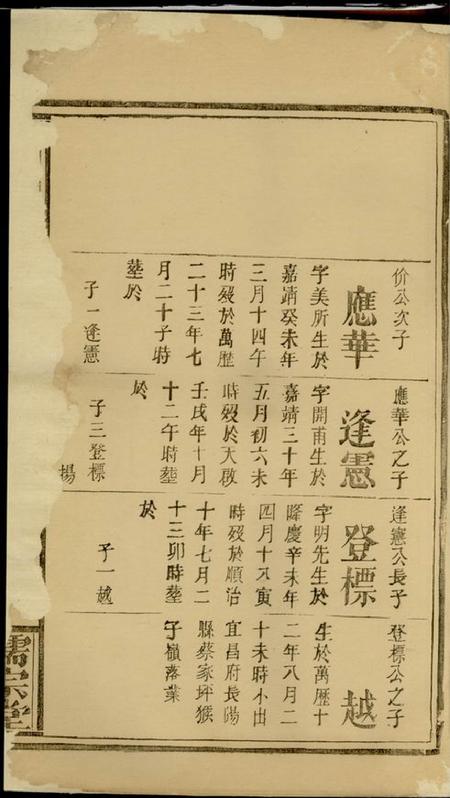 价公次子
應華
字美所生於
嘉靖癸未年
三月十四午
時歿於萬歷
二十三年七
月二十子時
塟於
子一逢憲
應華公之子
逢憲
字開甫生於
嘉靖三十年
五月初六未
時歿於天啟
壬戌年十月
十二午時塟
於
子三登標
揚
逢憲公長子
登標
字明先生於
隆慶辛未年
四月十八寅
時歿於順治
十年七月二
十三卯時塟
於
子一越
登標公之子
越
生於萬歷十
二年八月二
十未時小出
宜昌府長陽
縣蔡家坪猴
子嶺落業